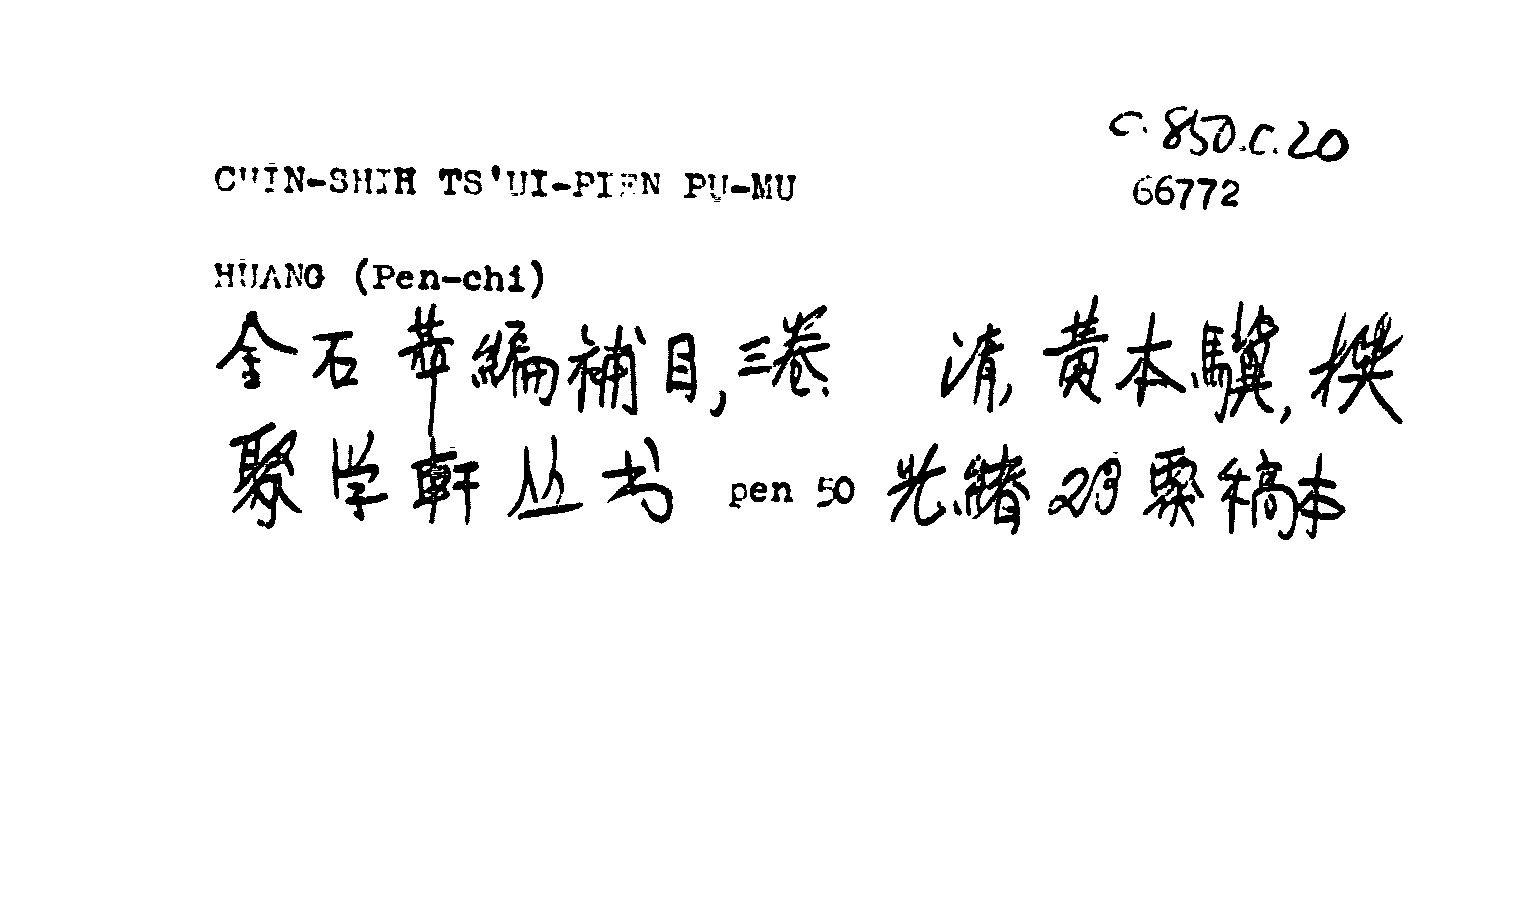 C.850.C.20
CHIN-SHIH TS'UI-PIEN PU-MU
66772
HUANG (Pen-chi)
金石萃編補目,三卷. 清,黃本驥,撰
聚学軒丛书 pen 50 光緒23 稿本